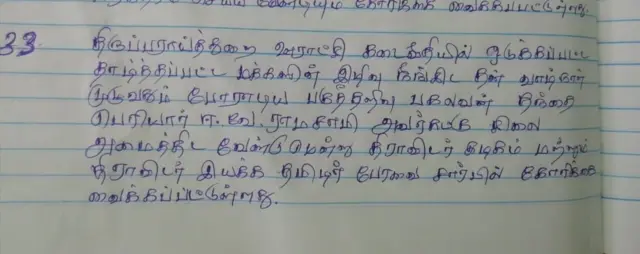 செய்ய வேண்டியும் கோரிக்கை வைக்கப்பட்டுள்ளது.
33 திருப்பராய்த்துறை ஊராட்சி கடைவீதியில் ஒடுக்கப்பட்ட
தாழ்த்தப்பட்ட மக்களின் இழிவு நீங்கிட தன் வாழ்நாள்
முழுவதும் போராடிய பகுத்தறிவு பகலவன் தந்தை
பெரியார் ஈ.வே.ராமசாமி அவர்களுக்கு சிலை
அமைத்திட வேண்டுமென்று திராவிடர் கழகம் மற்றும்
திராவிடர் இயக்க தமிழர் பேரவை சார்பில் கோரிக்கை
வைக்கப்பட்டுள்ளது.